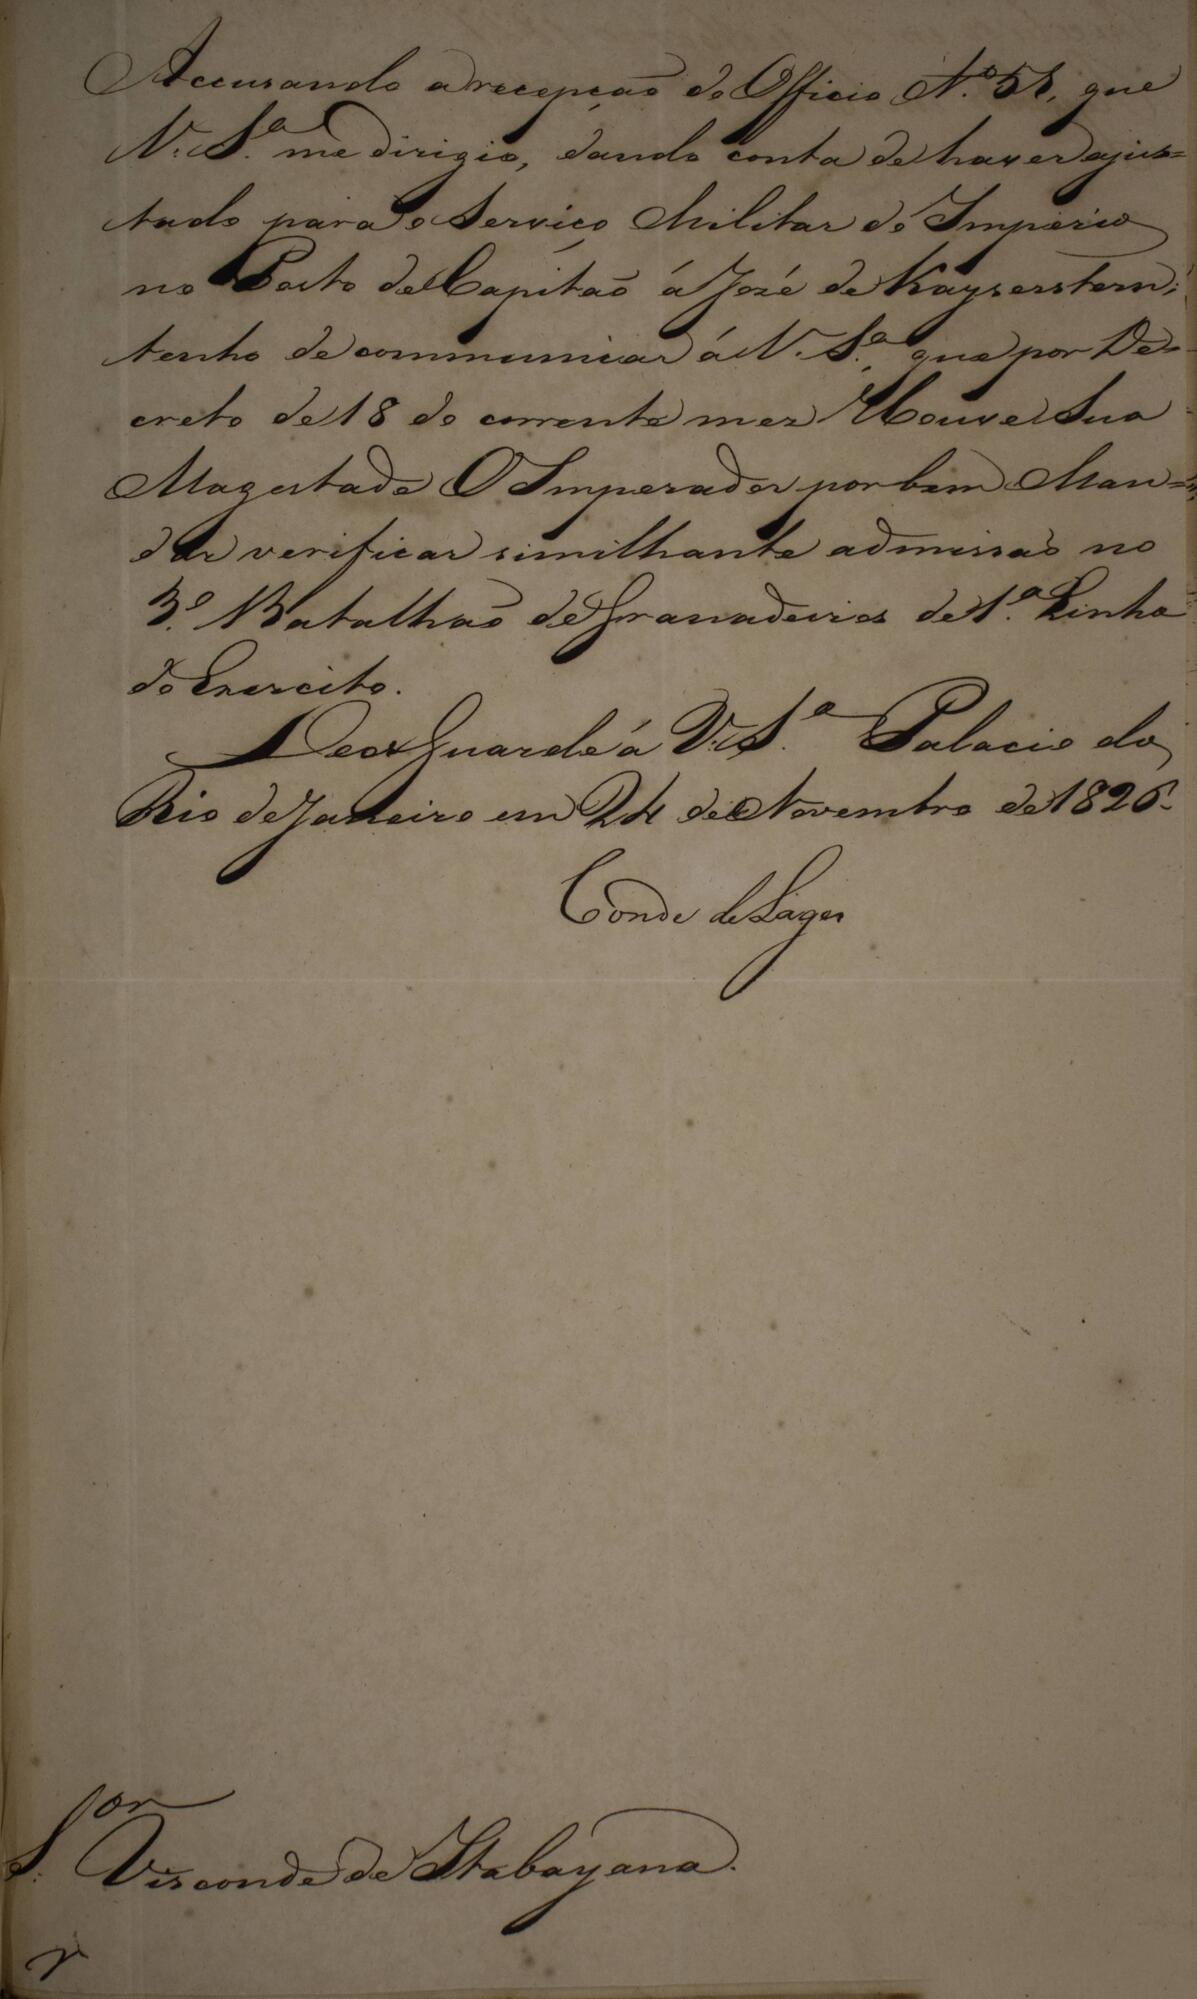 Accusando a recepção do Officio N.º 51, que
V. S.ª me dirigio, dando conta de haver ajus=
tado para o Serviço Militar do Imperio
no Posto de Capitaõ á José de Kayserstern;
tenho de communicar á V. S.ª, que por De=
creto de 18 do corrente mez Houve Sua
Magestade O Imperador por bem Man=
dar verificar similhante admissaõ no
3.º Batalhaõ de Granadeiros de 1.ª Linha
do Exercito.
Deos Guarde á V. S.ª Palacio do
Rio de Janeiro em 24 de Novembro de 1826.
Conde de Lages
S.or Visconde de Itabayana.